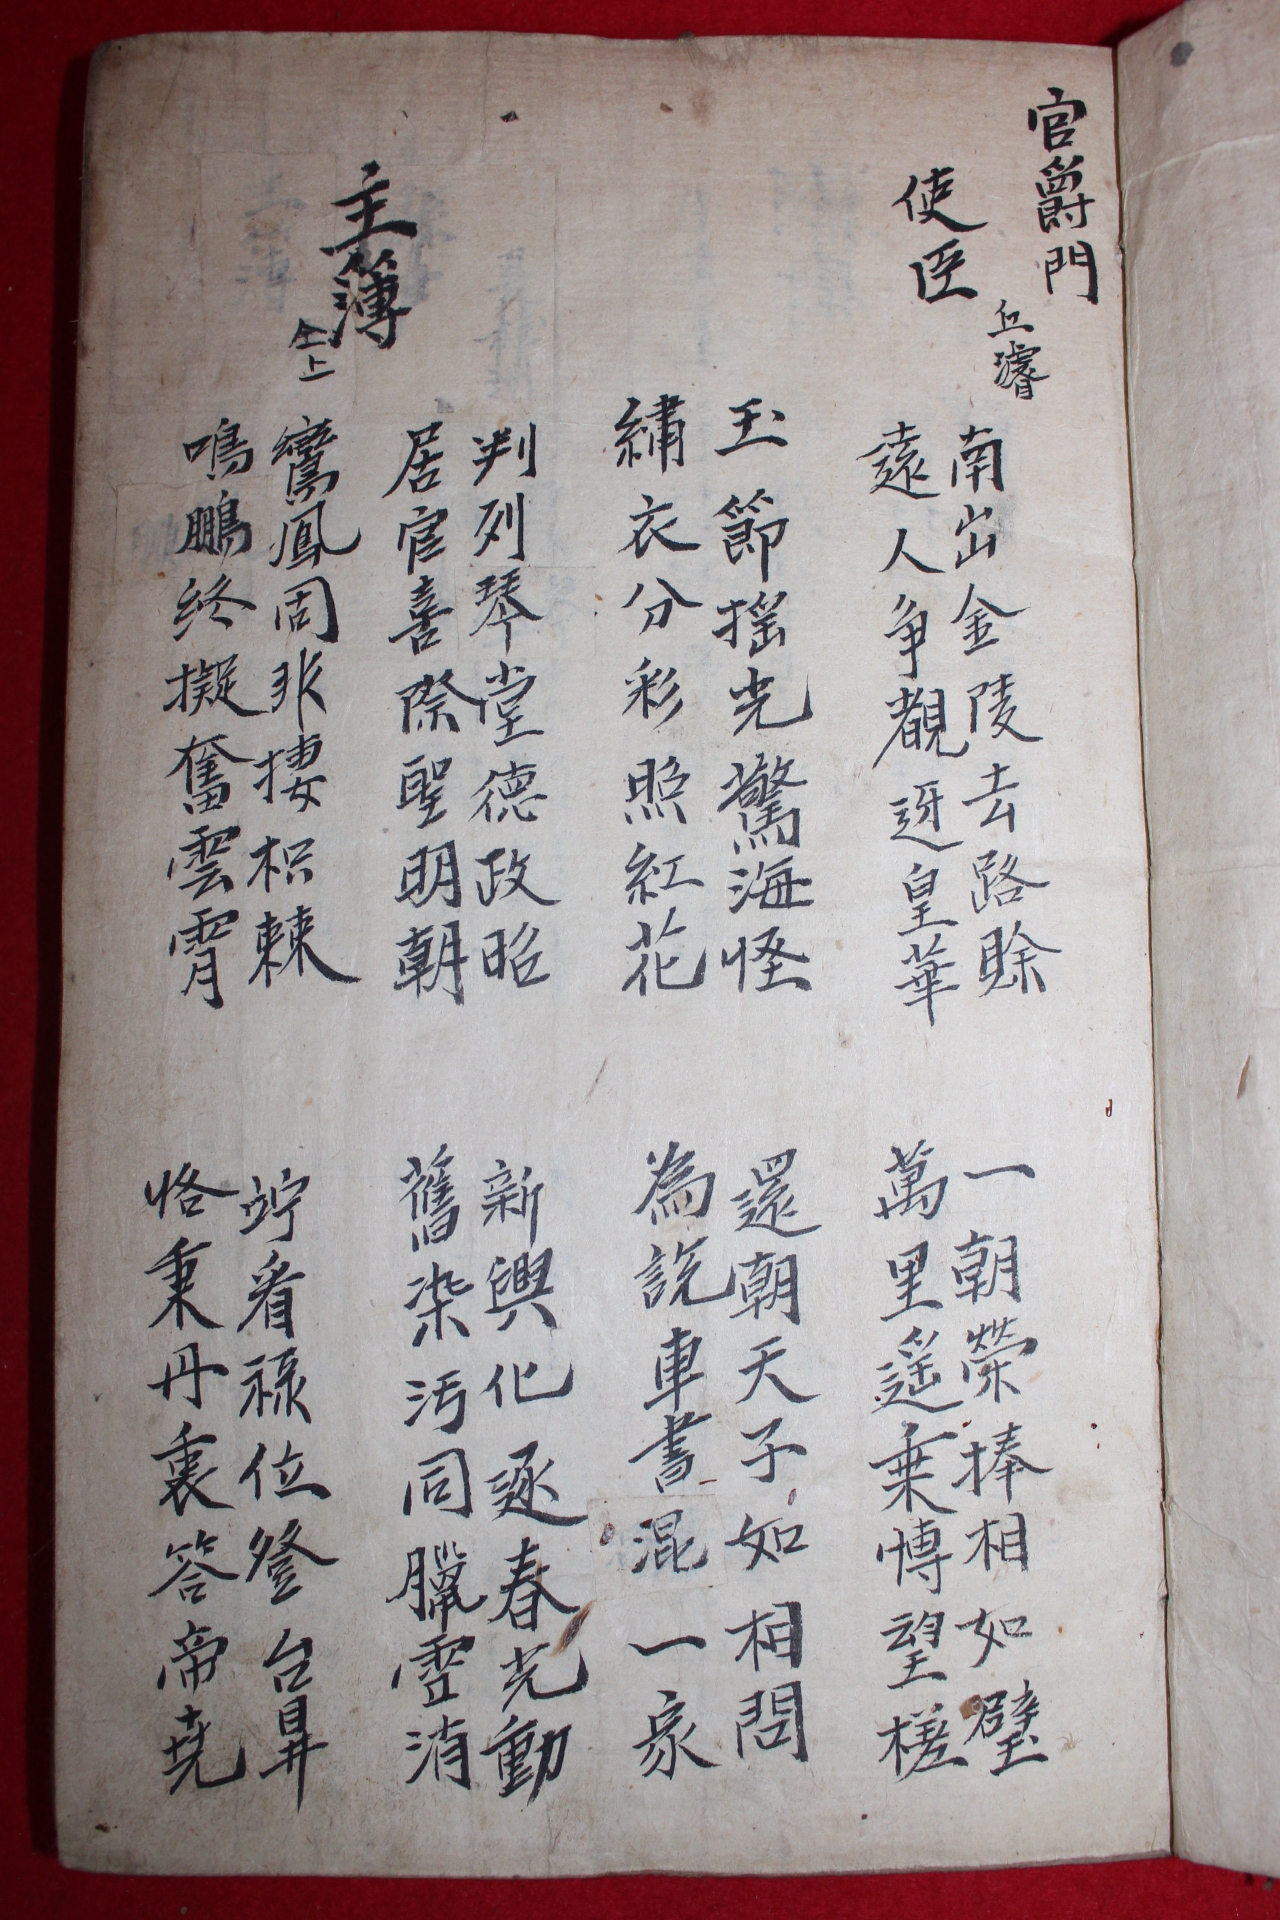 官爵門
使臣
丘濬
南出金陵去路賖
遠人争覩迓皇華
一朝榮捧相如璧
萬里遥乗愽望槎
玉節揺光驚海怪
繡衣分彩照紅花
還朝天子如相問
為說車書混一家
主簿
仝上
判列琴堂德政昭
居官喜際聖明朝
新興化逐春光動
舊染汚同臘雪消
鸞鳳固非棲枳棘
鳴鵬終擬奮雲霄
竚看祿位登台鼎
恪秉丹衷答帝堯